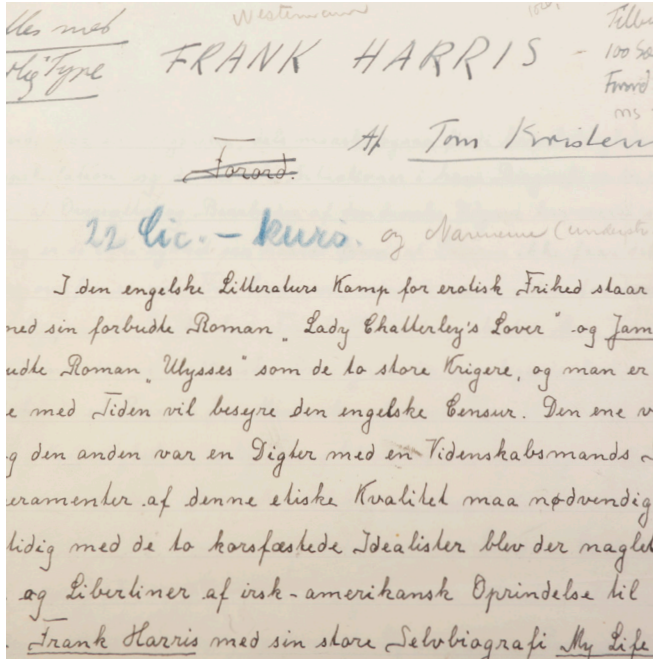 Westermann
lles med
FRANK HARRIS -
100
Af Tom Kristen
Forord.
22 Cic. - kurs. og Navnene (understr
I den engelske Litteraturs Kamp for erotisk Frihed staar
ned sin forbudte Roman „Lady Chatterley's Lover" og Jam
udte Roman „Ulysses" som de to store Krigere, og man er
e med Tiden vil besejre den engelske Censur. Den ene v
g den anden var en Digter med en Videnskabsmands
eramenter af denne etiske Kvalitet maa nødvendig
tidig med de to korsfæstede Idealister blev der naglet
og Libertiner af irsk-amerikansk Oprindelse til
. Frank Harris med sin store Selvbiografi My Life